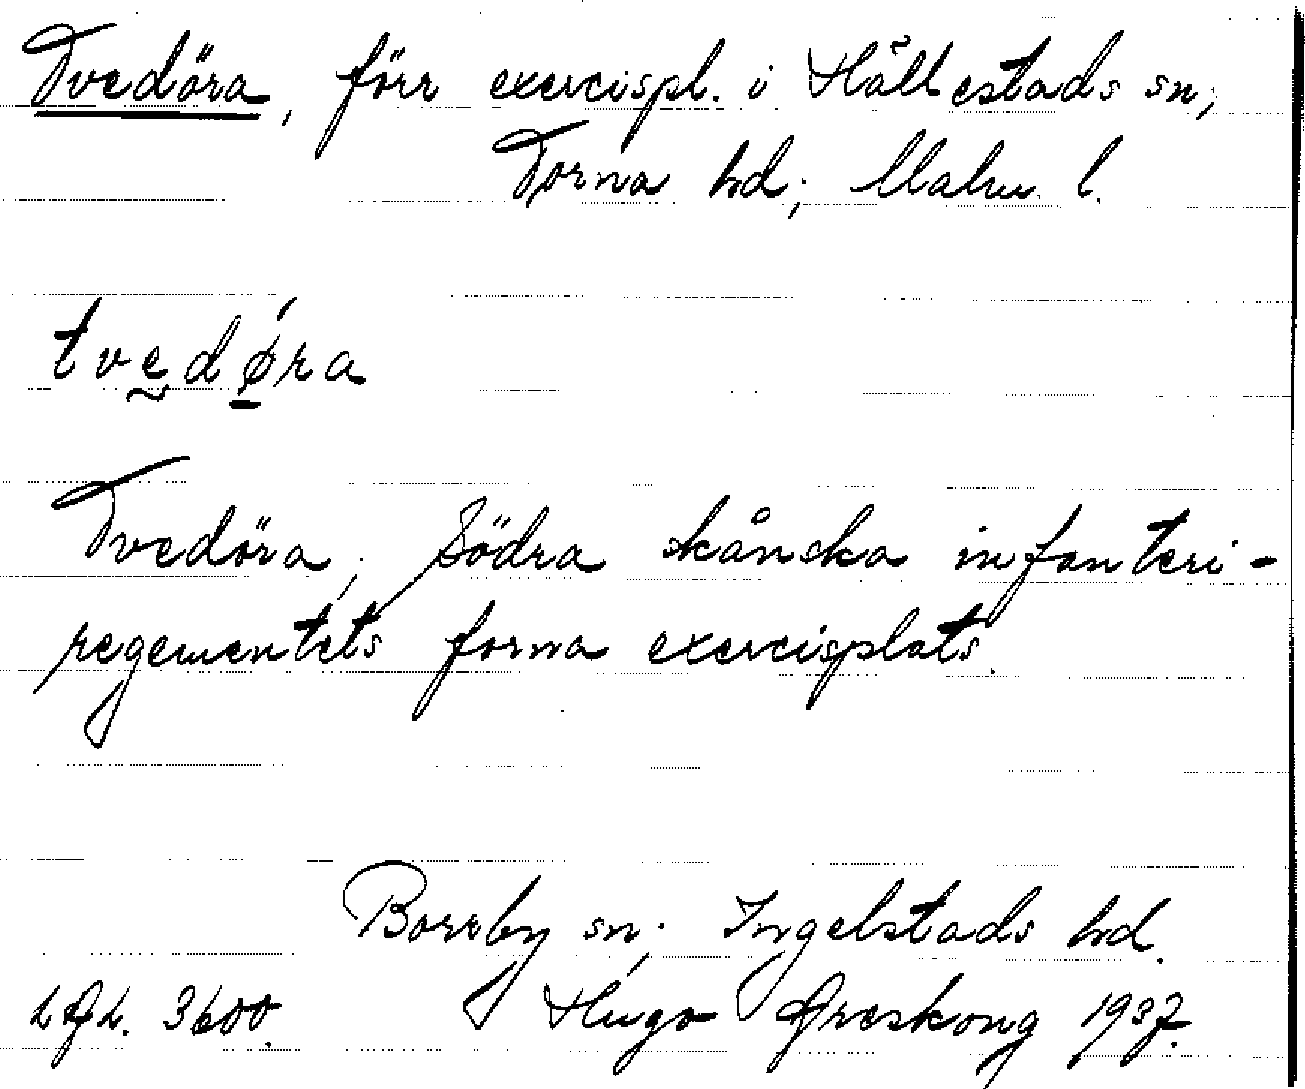 Tvedöra, förr exercispl. i Hällestads sn;
Torna hd; Malm. l.
tvedǿra
Tvedöra; Södra skånska infanteri-
regementets forna exercisplats.
Borrby sn; Ingelstads hd.
3600. Hugo Areskoug 1937.